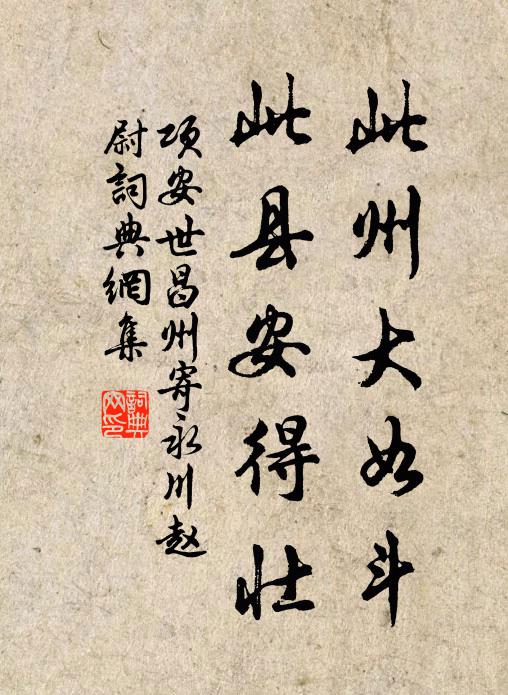 此州大如斗
此县安得壮
项安世昌州寄永川赵
尉詞典網集
詞典
网印